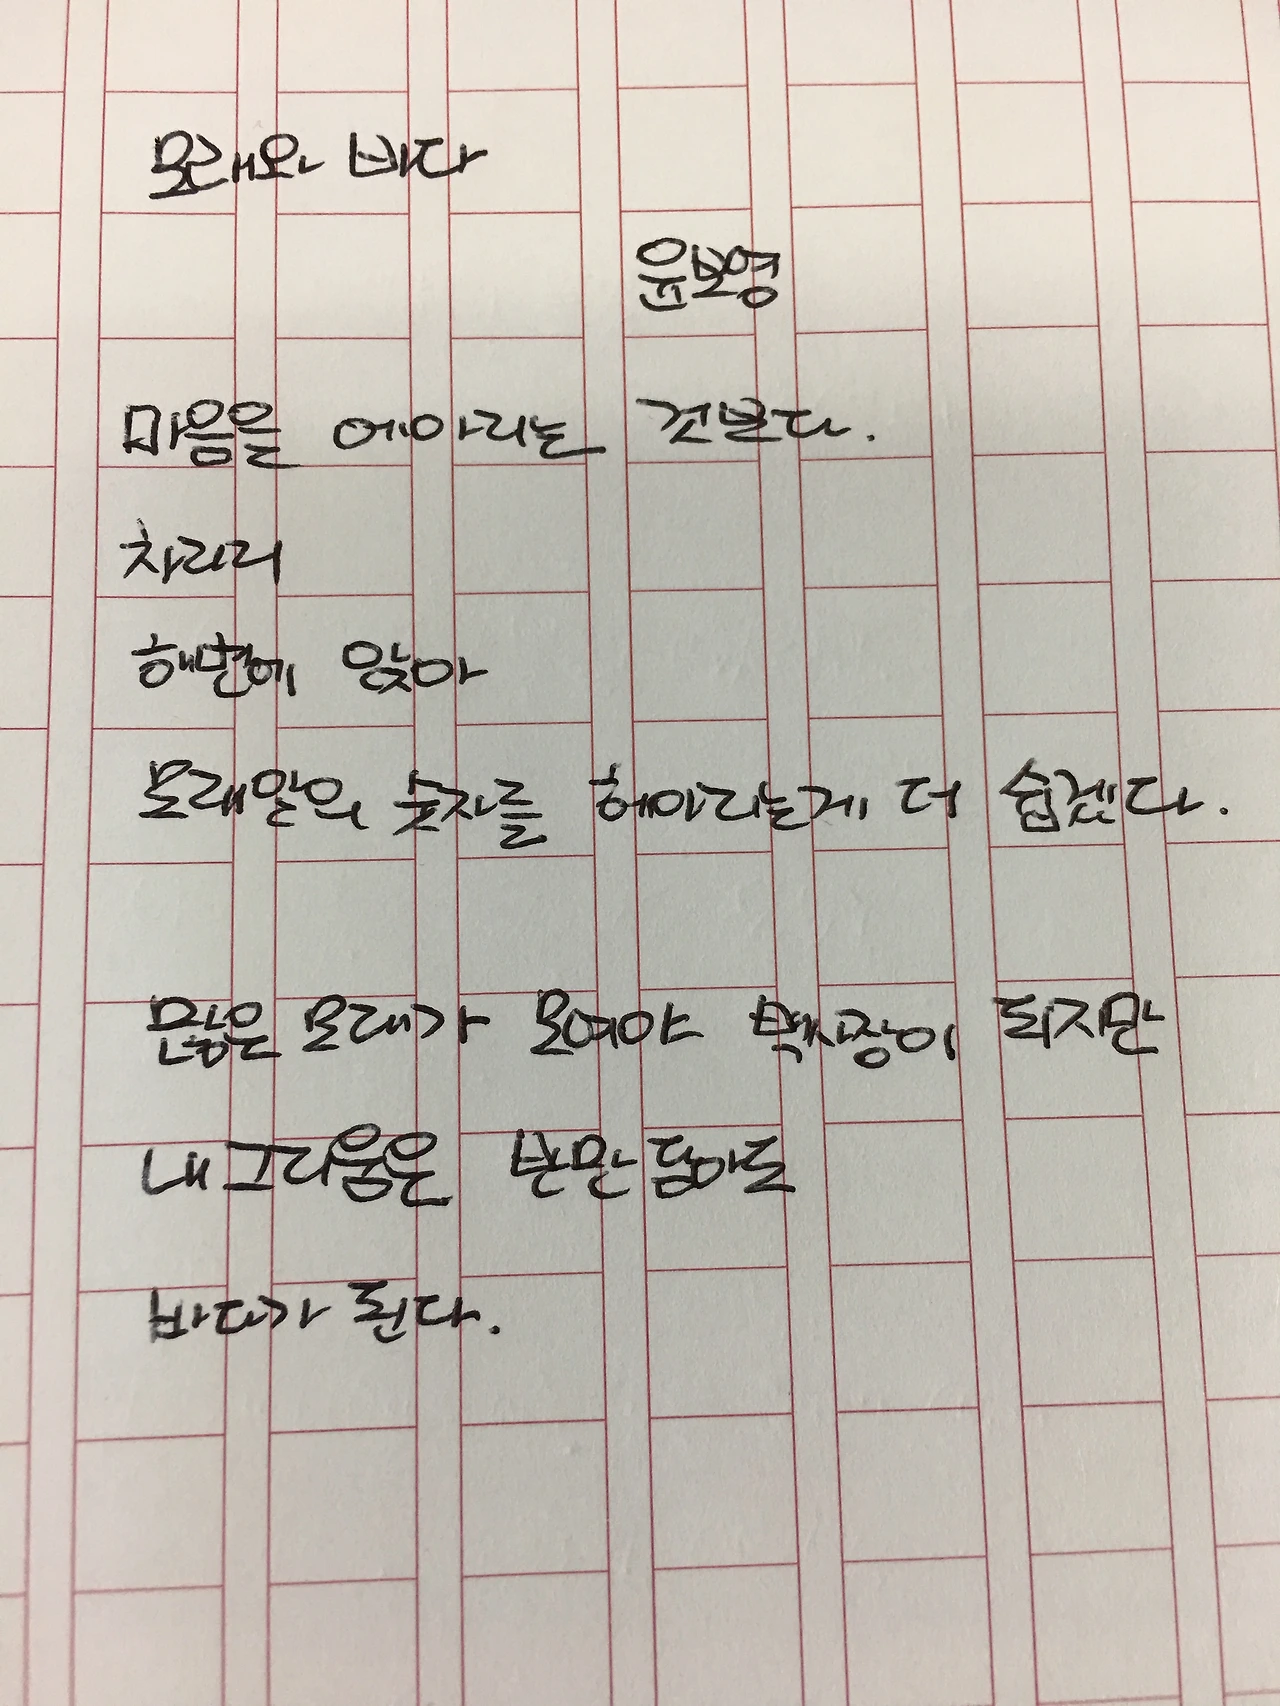 모래와 바다
윤보영
마음을 에아리는 것보다.
차라리
해변에 앉아
모래알의 숫자를 헤아리는게 더 쉽겠다.
많은 모래가 모여야 백사장이 되지만
내 그리움은 반만 담아도
바다가 된다.